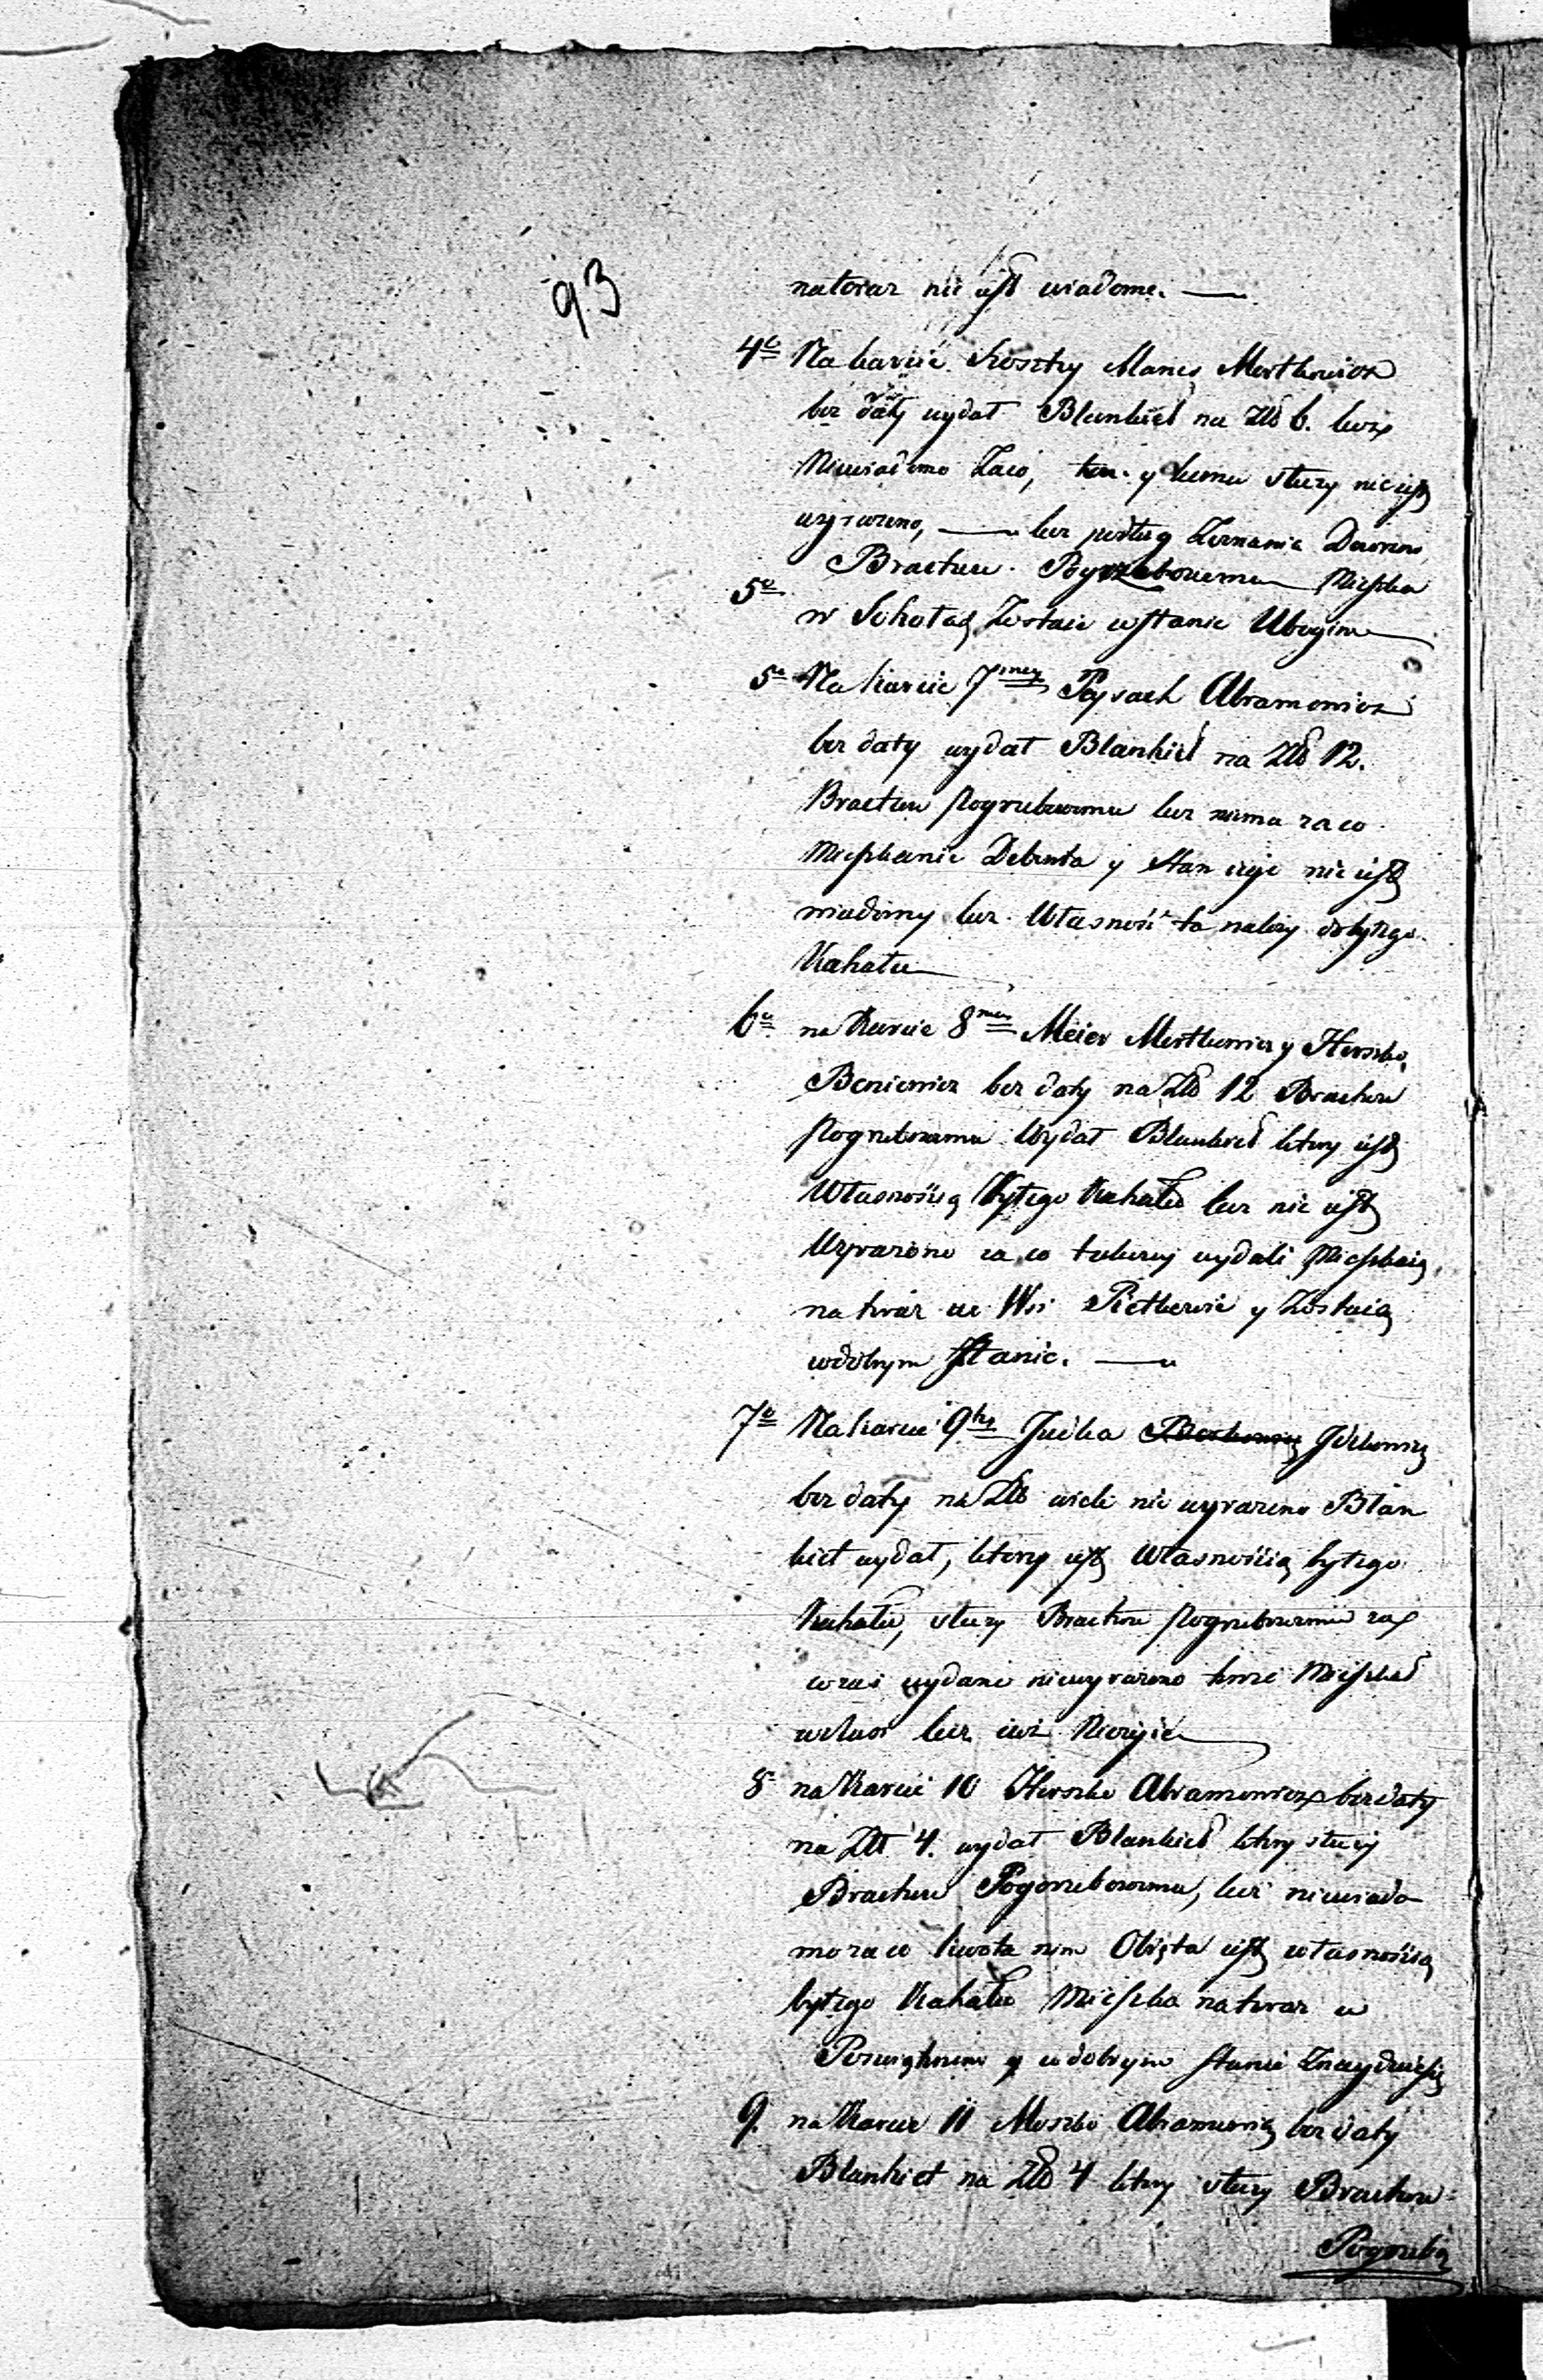 93
natoraz nie jest wiadome. —
4o Na karcie szostey Manes Mortkowicz
bez daty wydał Blankiet na Zł 6. lecz
Niewiadomo Zaco, y komu służy nie jest
wyrażono, — lecz podług Zeznania Dozoru
Bractwu Pogrzebowemu Mieszka
5o
w Sokołach Zostaie w stanie Ubogim
5o Na karcie 7mey Peysach Abramowicz
bez daty wydał Blankiet na Zł 12.
Bractwu pogrzebowemu lecz niema zaco
Mieszkanie Debenta y stan iego nie jest
wiadomy lecz Własność ta należy do byłego
Kahału
6o na Karcie 8mey Meier Mortkowicz y Herszko
Beniowicz bez daty na Zł 12 Bractwu
pogrzebowemu Wydał Blankiet który jest
Własnością byłego Kahału lecz nie jest
Wyrażono za co takowy wydali Mieszkaią
na teraz we Wsi Pietkowie y Zostaią
w dobrym stanie. —
7o Na karcie 9tey Judka Jckowicz
bez daty na Zł wiele nie wyrażono Blan
kiet wydał, który jest Własnością byłego
Kahału, służy Bractwu pogrzebowemu za
wydane niewyrażono Mieszkał
lecz iuż Nieżyie
8 na Karcie 10 Herszko Abramowicz bez daty
na Zł 4. wydał Blankiet który służy
Bractwu Pogrzebowemu, lecz niewiado
mo za co kwota nim Objęta jest własnością
byłego Kahału Mieszka na teraz w
Poswiętnem y w dobrym stanie Znayduie się
9. na Karcie 11 Moszko Abramowicz bez daty
Blankiet na Zł 4 który służy Bractwu
Pogrzebo